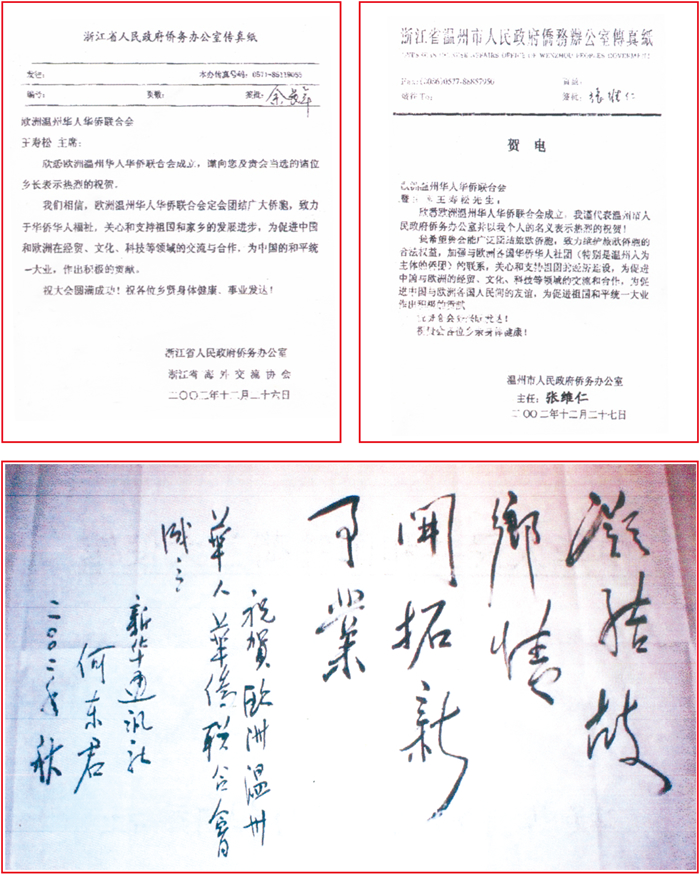 浙江省人民政府侨务办公室传真纸
发往: 本办传真号码: 0571-85119053
编号: 页数: 签批:
欧洲温州华人华侨联合会
王寿松 主席:
欣悉欧洲温州华人华侨联合会成立,谨向您及贵会当选的诸位
乡长表示热烈的祝贺。
我们相信,欧洲温州华人华侨联合会定会团结广大侨胞,致力
于华侨华人福祉,关心和支持祖国和家乡的发展进步,为促进中国
和欧洲在经贸、文化、科技等领域的交流与合作,为中国的和平统
一大业,作出积极的贡献。
祝大会圆满成功!祝各位乡贤身体健康、事业发达!
浙江省人民政府侨务办公室
浙江省海外交流协会
二〇〇二年十二月二十六日
浙江省温州市人民政府僑務辦公室傳真紙
签批: 张维仁
贺 电
欧洲温州华人华侨联合会
王寿松先生:
欣悉欧洲温州华人华侨联合会成立,我谨代表温州市人
民政府侨务办公室并以我个人的名义表示热烈的祝贺!
侨希望贵会能广泛团结旅欧侨胞,致力维护旅欧侨胞的
合法权益,加强与欧洲各国华侨华人社团(特别是温州人为
主体的侨团)的联系,关心和支持祖国的经济建设,为促进
中国与欧洲的经贸、文化、科技等领域的交流和合作,为促
进中国与欧洲各国人民间的友谊,为促进祖国和平统一大业
作出积极的贡献
温州市人民政府侨务办公室
主任: 张维仁
二〇〇二年十二月二十七日
凝結故
鄉情
開拓新
事業
祝賀歐洲温州
華人華僑联合會
成立
新华通讯社
何东君
二〇〇二年秋